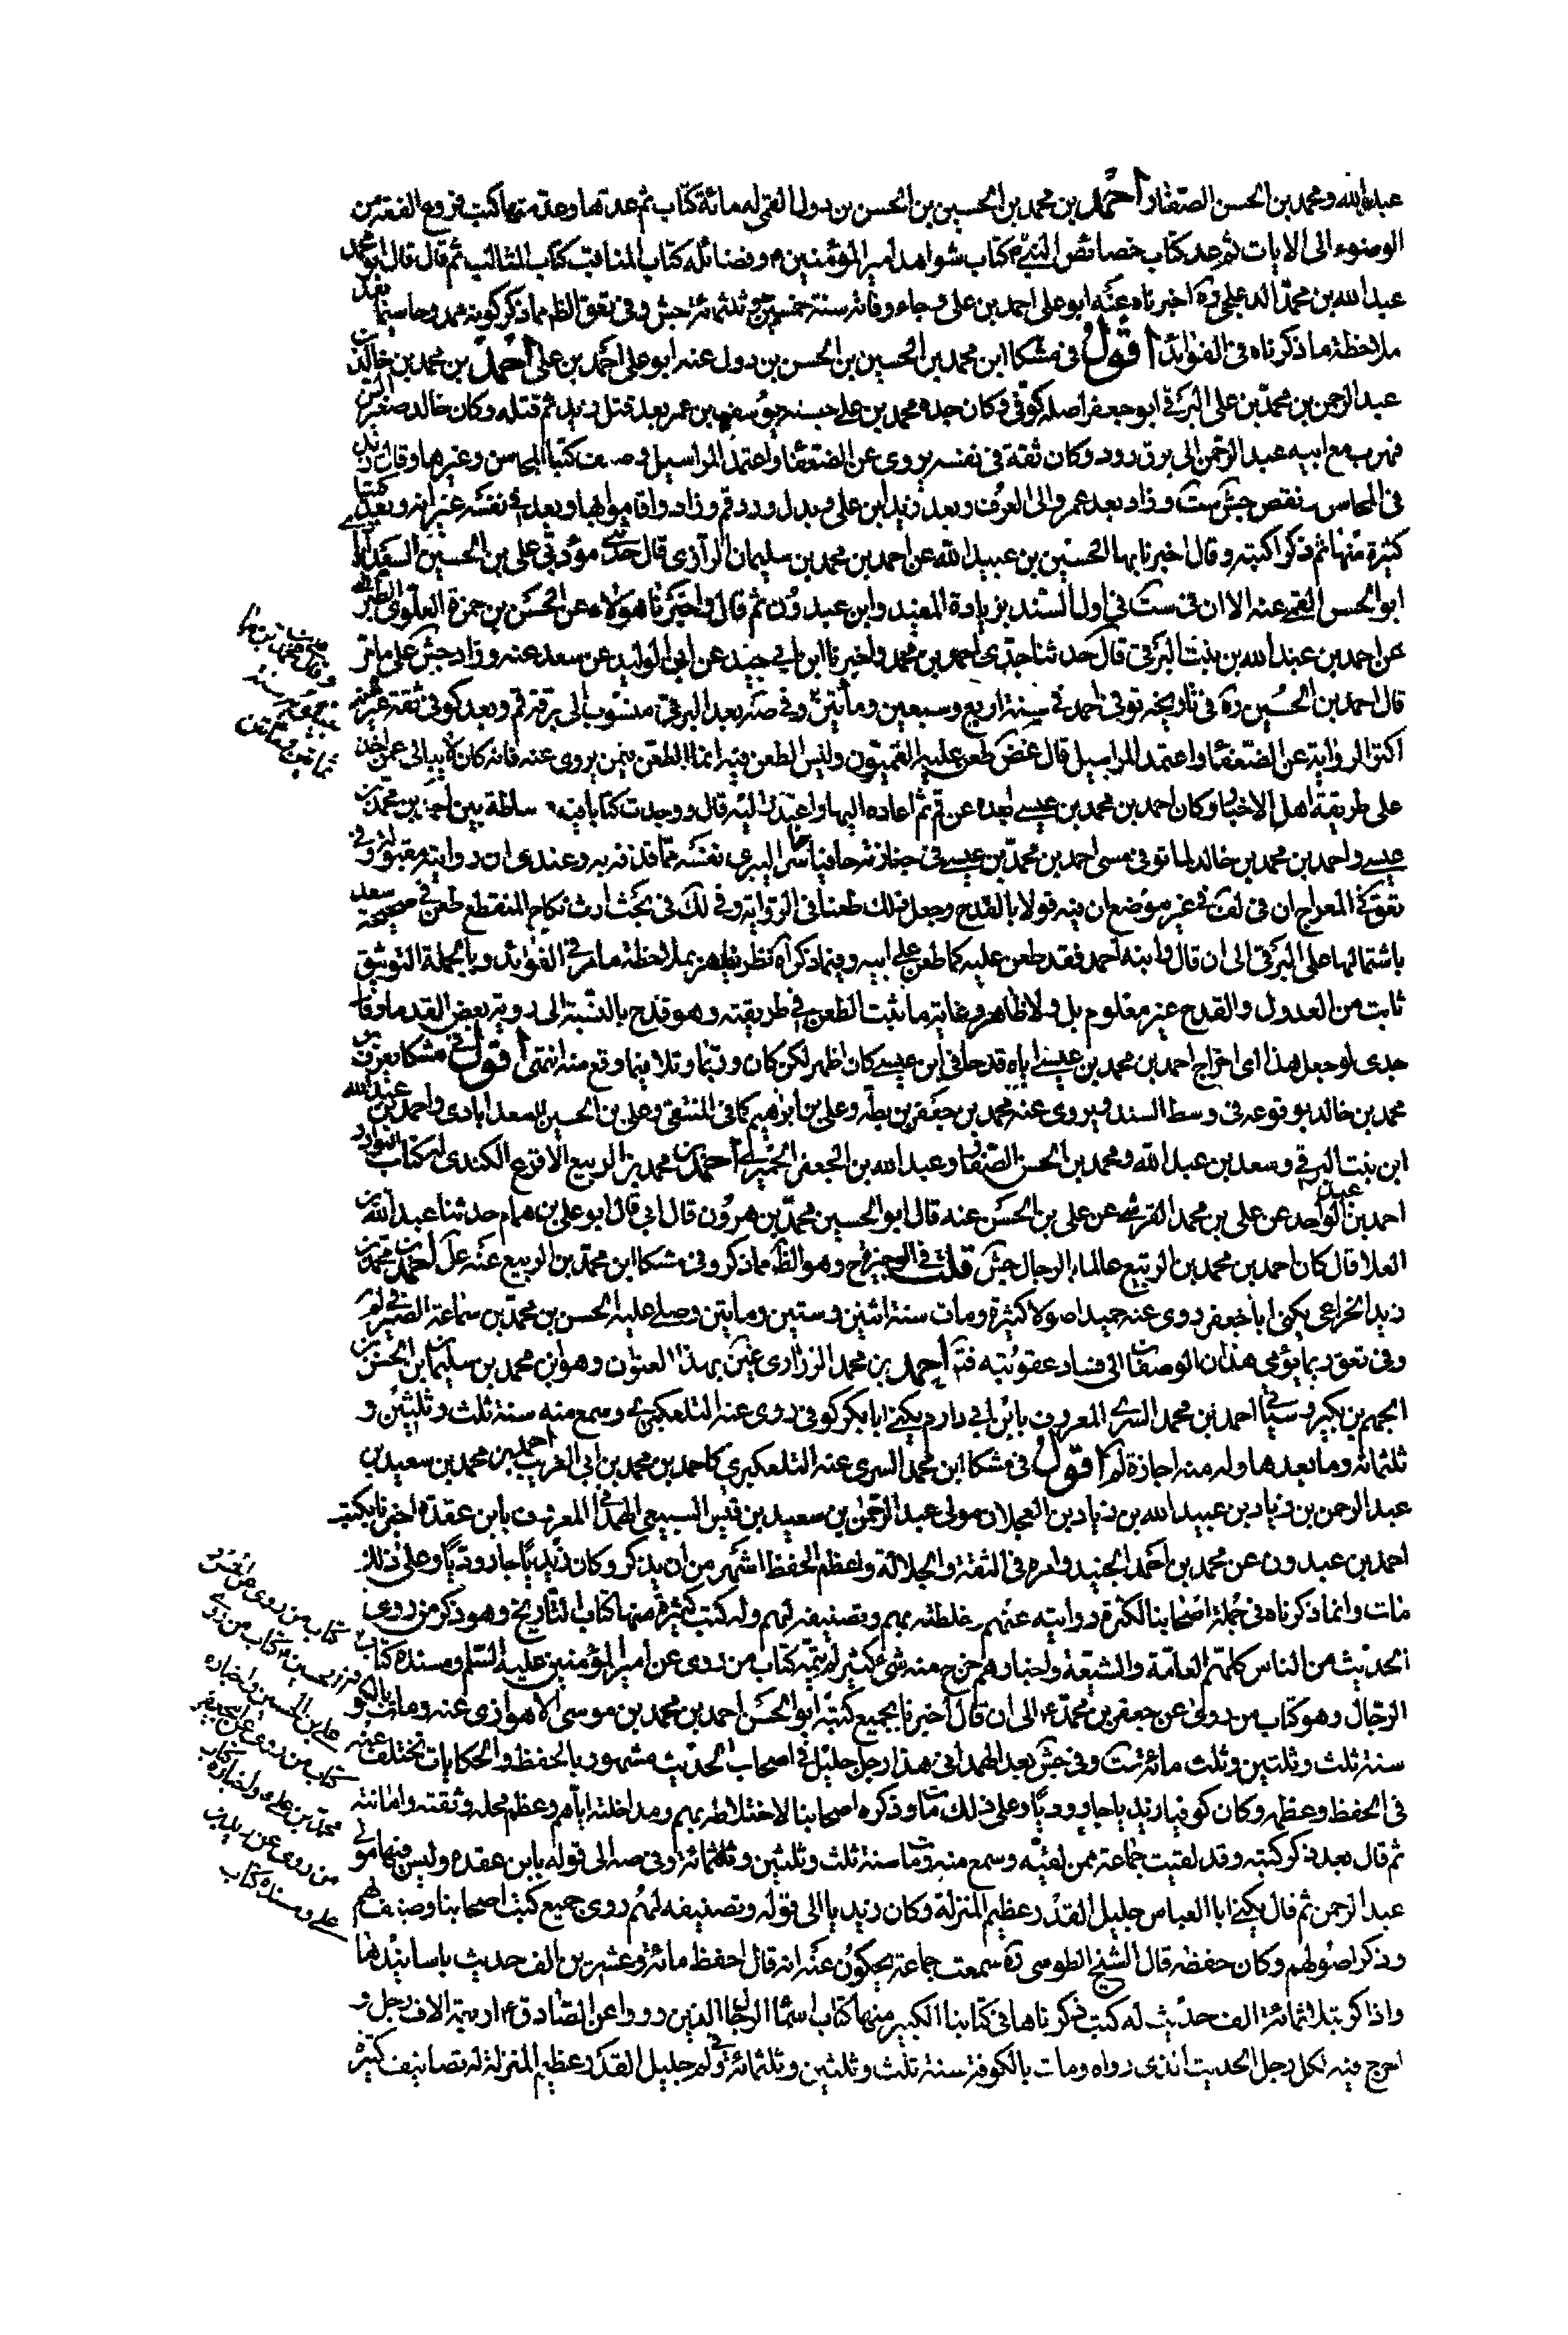 عبد الله ومحمد بن الحسن الصفار احمد بن محمد بن الحسين بن الحسن بن دول القمي له مائة كتاب ثم عدتها وعد منها كتب فروع الفقه من
الوضوء الى الايات ثم عد كتاب خصائص النبي ص كتاب شواهد امير المؤمنين ع وفضائله كتاب المناقب كتاب المثالب ثم قال قال ابو محمد
عبد الله بن محمد الدعلجي ره اخبرنا عنه ابو علي احمد بن علي وجاء وفاته سنة خمسين وثلثمائة جش وفي تعق الظ مما ذكر كونه ممدوحا سيما بعد
ملاحظة ما ذكرناه في الفوائد اقول في مشكا ابن محمد بن الحسين بن الحسن بن دول عنه ابو علي احمد بن علي احمد بن محمد بن خالد بن
عبد الرحمن بن محمد بن علي البرقي ابو جعفر اصله كوفي وكان جده محمد بن علي حبسه يوسف بن عمر بعد قتل زيد ثم قتله وكان خالد صغير السن
فهرب مع ابيه عبد الرحمن الى برق رود وكان ثقة في نفسه يروي عن الضعفا واعتمد المراسيل وصنف كتبا المحاسن وغيرها وقال زيد
في المحاسن ونقص جش ست وزاد بعد عمر والي العراق وبعد زيد ابن علي وبدل ورد قم وزاد واقاموا بها وبعد في نفسه غير انه وبعد كتبا
كثيرة منها ثم ذكر اكتبه وقال اخبرنا بها الحسين بن عبيد الله عن احمد بن محمد بن سليمان الرازي قال حدثني مؤدبي علي بن الحسين السعدابادي
ابو الحسن القمي عنه الا ان في ست في اول السند بزيادة المفيد وابن عبدون ثم قال واخبرنا هؤلاء عن الحسن بن حمزة العلوي الطبري
عن احمد بن عبد الله بن بنت البرقي قال حدثنا جدي احمد بن محمد واخبرنا ابن ابي جيد عن ابن الوليد عن سعد عنه وزاد جش على ما مر
قال احمد بن الحسين ره في تاريخه توفي احمد في سنة اربع وسبعين ومأتين وفي صه بعد البرقي منسوب الى برقة قم وبعد كوفي ثقة غير انه
اكثر الرواية عن الضعفا واعتمد المراسيل قال غض طعن عليه القميون وليس الطعن فيه انما الطعن فيمن يروي عنه فانه كان لا يبالي عمن اخذ
على طريقة اهل الاخبار وكان احمد بن محمد بن عيسى ابعده عن قم ثم اعاده اليها واعتذر اليه قال ووجدت كتابا فيه وساطة بين احمد بن محمد بن
عيسى واحمد بن محمد بن خالد لما توفي مشى احمد بن محمد بن عيسى في جنازته حافيا حاسرا ليبرئ نفسه مما قذفه به وعندي ان روايته مقبولة وفي
تعق في المعراج ان في لف في غير موضع ان فيه قولا بالقدح وجعل ذلك طعنا في الرواية وفي لك في بحث ارث نكاح المنقطع طعن في صحيحة سعد
باشتمالها على البرقي الى ان قال وابنه احمد فقد طعن عليه كما طعن على ابيه وفيما ذكراه نظر يظهر بملاحظة ما مر في الفوائد وبالجملة التوثيق
ثابت من العدول والقدح غير معلوم بل ولا ظاهر وغاية ما يثبت الطعن في طريقته وهو قدح بالنسبة الى رويته بعض القدماء وقال
جدي لو جعل هذا اي اخراج احمد بن محمد بن عيسى اياه قدحا في ابن عيسى كان اظهر لكن كان ورعا وتلافى ما وقع منه انتهى اقول في مشكا يعرف ابن
محمد بن خالد بوقوعه في وسط السند ويروي عنه محمد بن جعفر بن بطه وعلي بن ابراهيم كما في المنتقى وعلي بن الحسين السعدابادي واحمد بن عبد الله
ابن بنت البرقي وسعد بن عبد الله ومحمد بن الحسن الصفار وعبد الله بن الجعفر الحميري احمد بن محمد بن الربيع الاقرع الكندي له كتاب النوادر
احمد بن عبد الواحد عن علي بن محمد القرشي عن علي بن الحسن عنه قال ابو الحسين محمد بن هرون قال ابي قال ابو علي بن همام حدثنا عبد الله بن
العلا قال كان احمد بن محمد بن الربيع عالما بالرجال جش قلت في الوجيزة ح وهو الظ مما ذكر وفي مشكا ابن محمد بن الربيع عنه علي احمد بن محمد بن
زيد الخزاعي يكنى ابا جعفر روى عنه حميد اصولا كثيرة ومات سنة اثنين وستين ومايتين وصلى عليه الحسن بن محمد بن سماعة الصيرفي لم
وفي تعق ربما يؤمي هذان الوصفان الى فساد عقيدته فتأمل احمد بن محمد الزراري عين بهذا العنوان وهو ابن محمد بن سليمان ابن الحسن بن
الجهم بن بكير وسيأتي احمد بن محمد السري المعروف بابن ابي دارم يكنى ابا بكر كوفي روى عنه التلعكبري وسمع منه سنة ثلث وثلثين و
ثلثمائة وما بعدها وله منه اجازة لم اقول في مشكا ابن محمد السري عنه التلعكبري كاحمد بن محمد بن ابي الغريب احمد بن محمد بن سعيد بن
عبد الرحمن بن زياد بن عبيد الله بن زياد بن العجلان مولى عبد الرحمن بن سعيد بن قيس السبيعي الهمداني المعروف بابن عقدة اخبرنا بكتبه
احمد بن عبدون عن محمد بن احمد الجنيد وامره في الثقة والجلالة واعظم الحفظ اشهر من ان يذكر وكان زيديا جاروديا وعلى ذلك
مات وانما ذكرناه في جملة اصحابنا لكثرة روايته عنهم وخلطته بهم وتصنيفه لهم وله كتب كثيرة منها كتاب التاريخ وهو ذكر من روى
الحديث من الناس كلهم العامة والشيعة واخبارهم خرج منه شي كثير لم يتمه كتاب من روى عن امير المؤمنين عليه السلم ومسنده كتاب
الرجال وهو كتاب من روى عن جعفر بن محمد ع الى ان قال اخبرنا بجميع كتبه ابو الحسن احمد بن محمد بن موسى الاهوازي عنه ومات بالكوفة
سنة ثلث وثلثين وثلث مائة ست وفي جش بعد الهمداني هذا رجل جليل في اصحاب الحديث مشهور بالحفظ والحكايات تختلف عنه
في الحفظ وعظمه وكان كوفيا زيديا جاروديا وعلى ذلك مات وذكره اصحابنا لاختلاطه بهم ومداخلته اياهم وعظم محله وثقته وامانته
ثم قال بعد ذكر كتبه وقد لقيت جماعة ممن لقيه وسمع منه ومات سنة ثلث وثلثين وثلثمائة وفي صه الى قوله بابن عقده وليس فيها مولى
عبد الرحمن ثم قال يكنى ابا العباس جليل القدر عظيم المنزلة وكان زيديا الى قوله وتصنيفه لهم روى جميع كتب اصحابنا وصنف لهم
وذكر اصولهم وكان حفظة قال الشيخ الطوسي ره سمعت جماعة يحكون عنه انه قال احفظ مائة وعشرين الف حديث باسانيدها
واذاكر بثلثمائة الف حديث له كتب ذكرناها في كتابنا الكبير منها كتاب اسماء الرجال الذين رووا عن الصادق ع اربعة الاف رجل و
اخرج فيه لكل رجل الحديث الذي رواه ومات بالكوفة سنة ثلث وثلثين وثلثمائة وفي لم جليل القدر عظيم المنزلة له تصانيف كثيرة
كتاب من روى عن الحسن و
الحسين ع كتاب من روى
علي بن الحسين واخباره
كتاب من روى عن ابي جعفر
محمد بن علي ع واخباره كتاب
من روى عن زيد بن
علي ومسنده كتاب